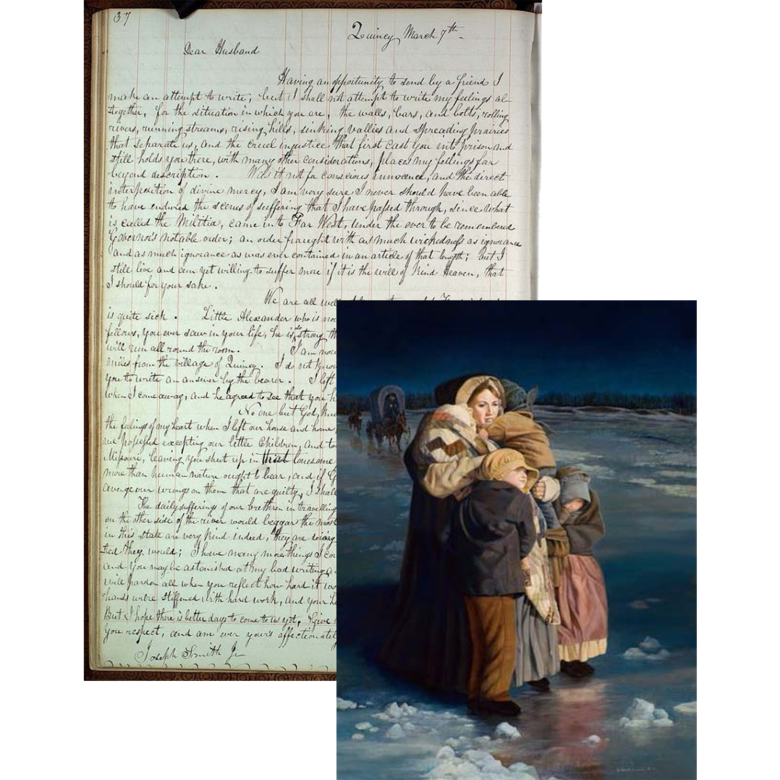 37
Quincy March 7th
Dear Husband
Having an opportunity to send by a friend I
make an attempt to write, but I shall not attempt to write my feelings al-
together, for the situation in which you are, the walls, bars, and bolts, rolling
rivers, running streams, rising hills, sinking vallies and spreading prairies
that separate us, and the cruel injustice that first cast you into prison and
still holds you there, with many other considerations, places my feelings far
beyond description. Was it not for conscious innocence, and the direct
interposition of divine mercy, I am very sure I never should have been able
to have endured the scenes of suffering that I have passed through, since what
is called the Militia, came in to Far West, under the ever to be remembered
Governor's notable order; an order fraught with as much wickedness as ignorance
and as much ignorance as was ever contained in an article of that length; but I
still live and am yet willing to suffer more if it is the will of kind Heaven, that
I should for your sake.
We are all well
is quite sick. Little Alexander who is now
fellows, you ever saw in your life, he is so strong
will run all round the room. I am now
miles from the village of Quincy. I do not know
you to write an answer by the bearer. I left
when I came away, and he agreed to see that you
No one but God,
the feelings of my heart when I left our house and home
we possessed excepting our little Children, and
Missouri, leaving you shut up in that lonesome
more than human nature ought to bear, and if
avenge our wrongs on them that are guilty, I shall
The daily sufferings of our brethren in travelling
on the other side of the river would beggar the most
in this state are very kind indeed, they are doing
they would; I have many more things I
and you may be astonished at my bad writing
will pardon all when you reflect how hard it
hands were stiffened with hard work, and your
But I hope there is better days to come to us yet, Give
you respect, and am ever yours affectionately
Joseph Smith Jr